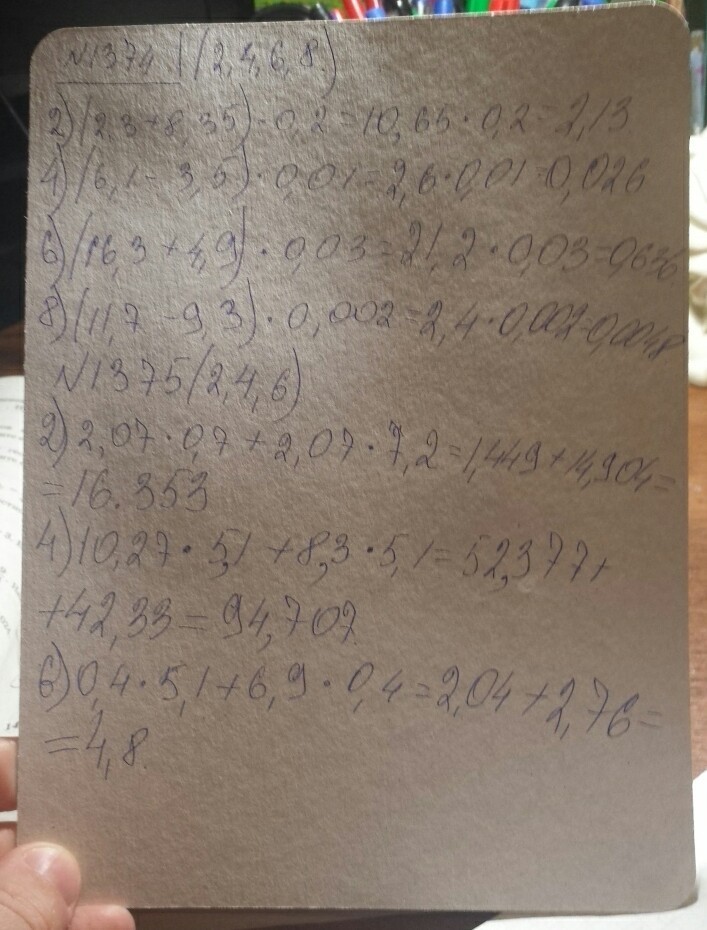 N1374 (2,4,6,8.)
2) (2,3+8,35)·0,2=10,65·0,2=2,13
4) (6,1-3,5)·0,01=2,6·0,01=0,026
6) (16,3+4,9)·0,03=21,2·0,03=0,636
8) (11,7-9,3)·0,002=2,4·0,002=0,0048
N1375 (2,4,6)
2) 2,07·0,7+2,07·7,2=1,449+14,904=
=16.353
4) 10,27·5,1+8,3·5,1=52,377+
+42,33=94,707
6) 0,4·5,1+6,9·0,4=2,04+2,76=
=4,8.